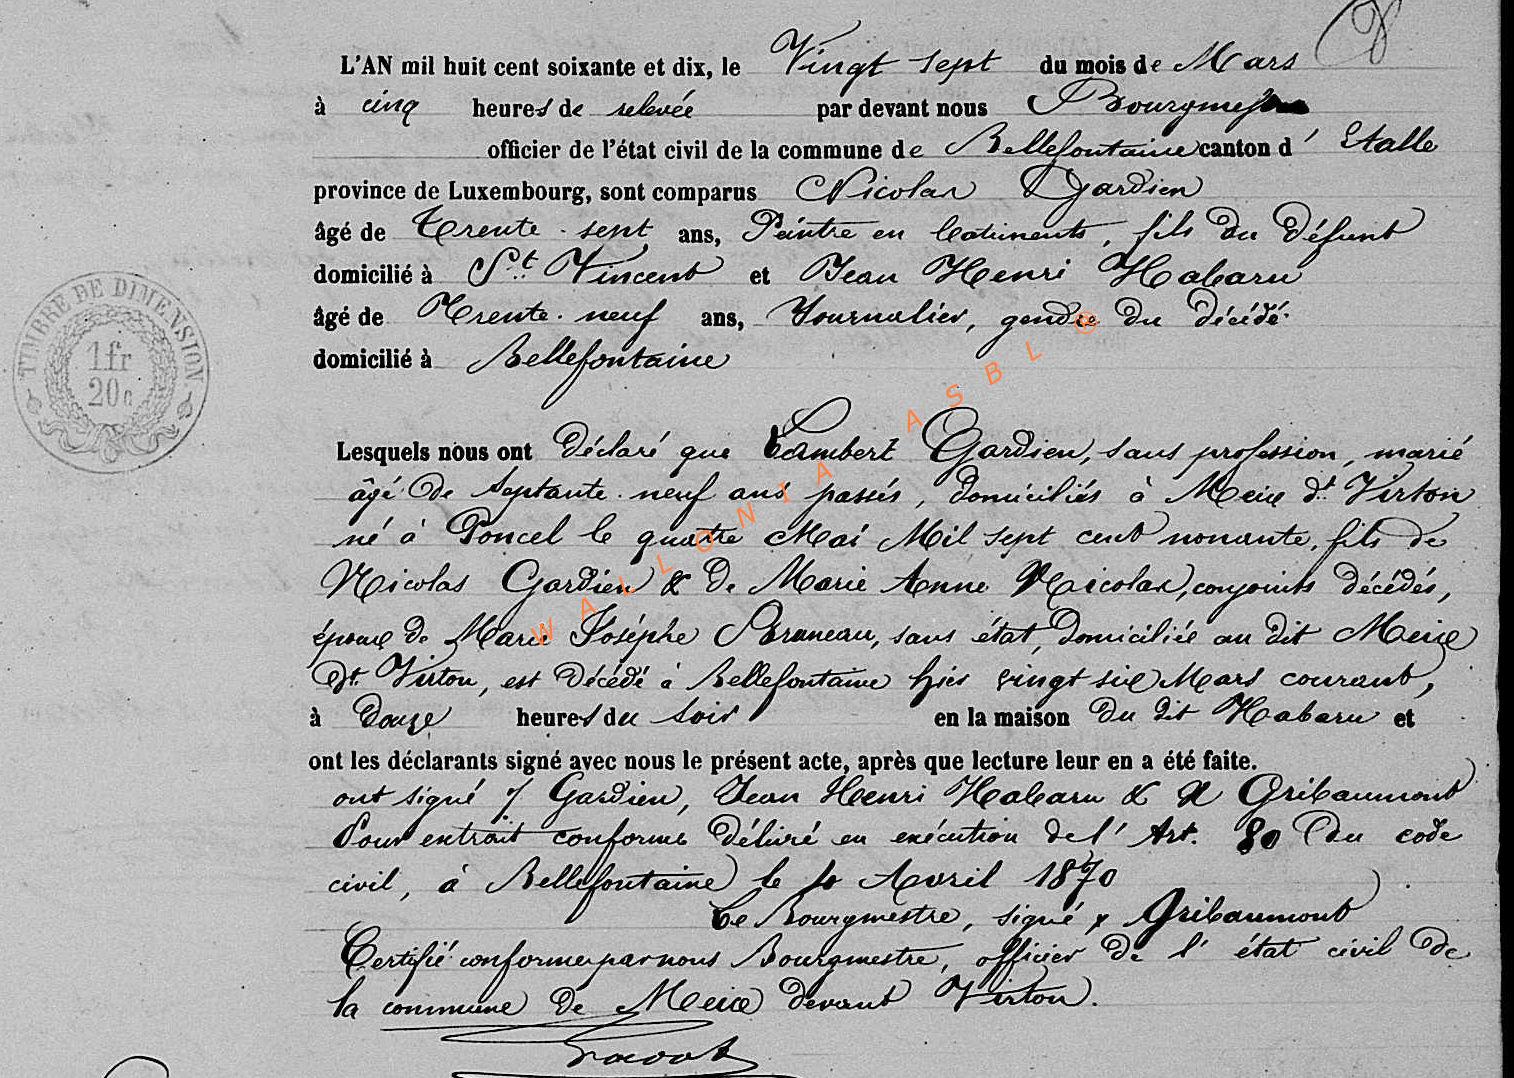 L'AN mil huit cent soixante et dix, le Vingt sept du mois de Mars
à cinq heures de relevée par devant nous Bourgmestre
officier de l'état civil de la commune de Bellefontaine canton d' Etalle
province de Luxembourg, sont comparus Nicolas Gardien
âgé de Trente-sept ans, Peintre en batiments, fils du défunt
domicilié à St. Vincent et Jean Henri Habaru
âgé de Trente-neuf ans, Journalier, gendre du décédé
domicilié à Bellefontaine
TIMBRE DE DIMENSION
1fr
20c
Lesquels nous ont déclaré que Lambert Gardien, sans profession, marié
âgé de septante-neuf ans passés, domiciliés à Meix dt Virton
né à Poncel le quatre Mai Mil sept cent nonante, fils de
Nicolas Gardien & de Marie Anne Nicolas, conjoints décédés,
époux de Marie Joséphe Bruneau, sans état, domiciliée au dit Meix
dt. Virton, est décédé à Bellefontaine hier vingt six Mars courant,
à douze heures du soir en la maison du dit Habaru et
ont les déclarants signé avec nous le présent acte, après que lecture leur en a été faite.
ont signé Gardien, Jean Henri Habaru & Gribaumont
Pour extrait conforme délivré en exécution de l' Art. 80 du code
civil, à Bellefontaine le Avril 1870
Le Bourgmestre, signé Gribaumont
Certifié conforme par nous Bourgmestre, officier de l' état civil de
la commune de Meix devant Virton.
WALLONIA ASBL ®